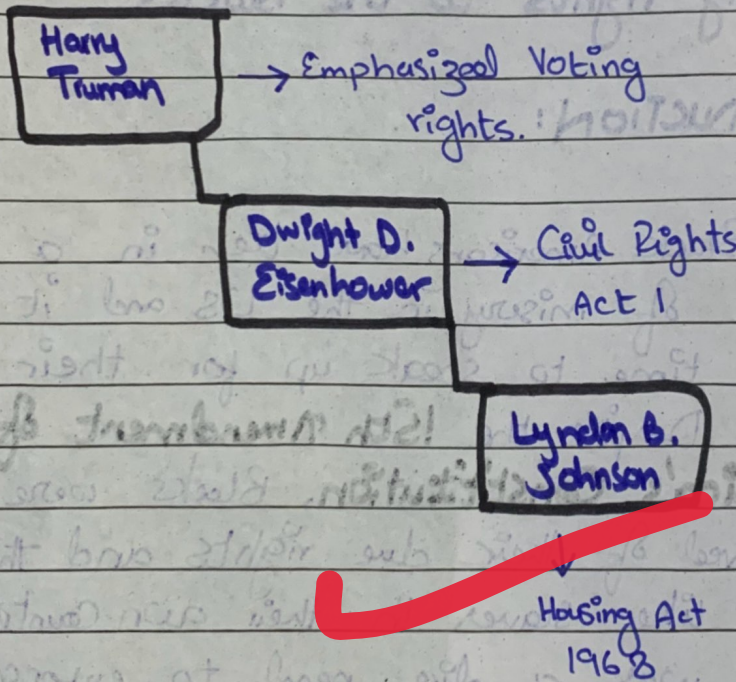 Harry
Truman
→ Emphasized Voting
rights.
Dwight D.
Eisenhower
→ Civil Rights
Act 1
Lyndon B.
Johnson
↓
Housing Act
1968